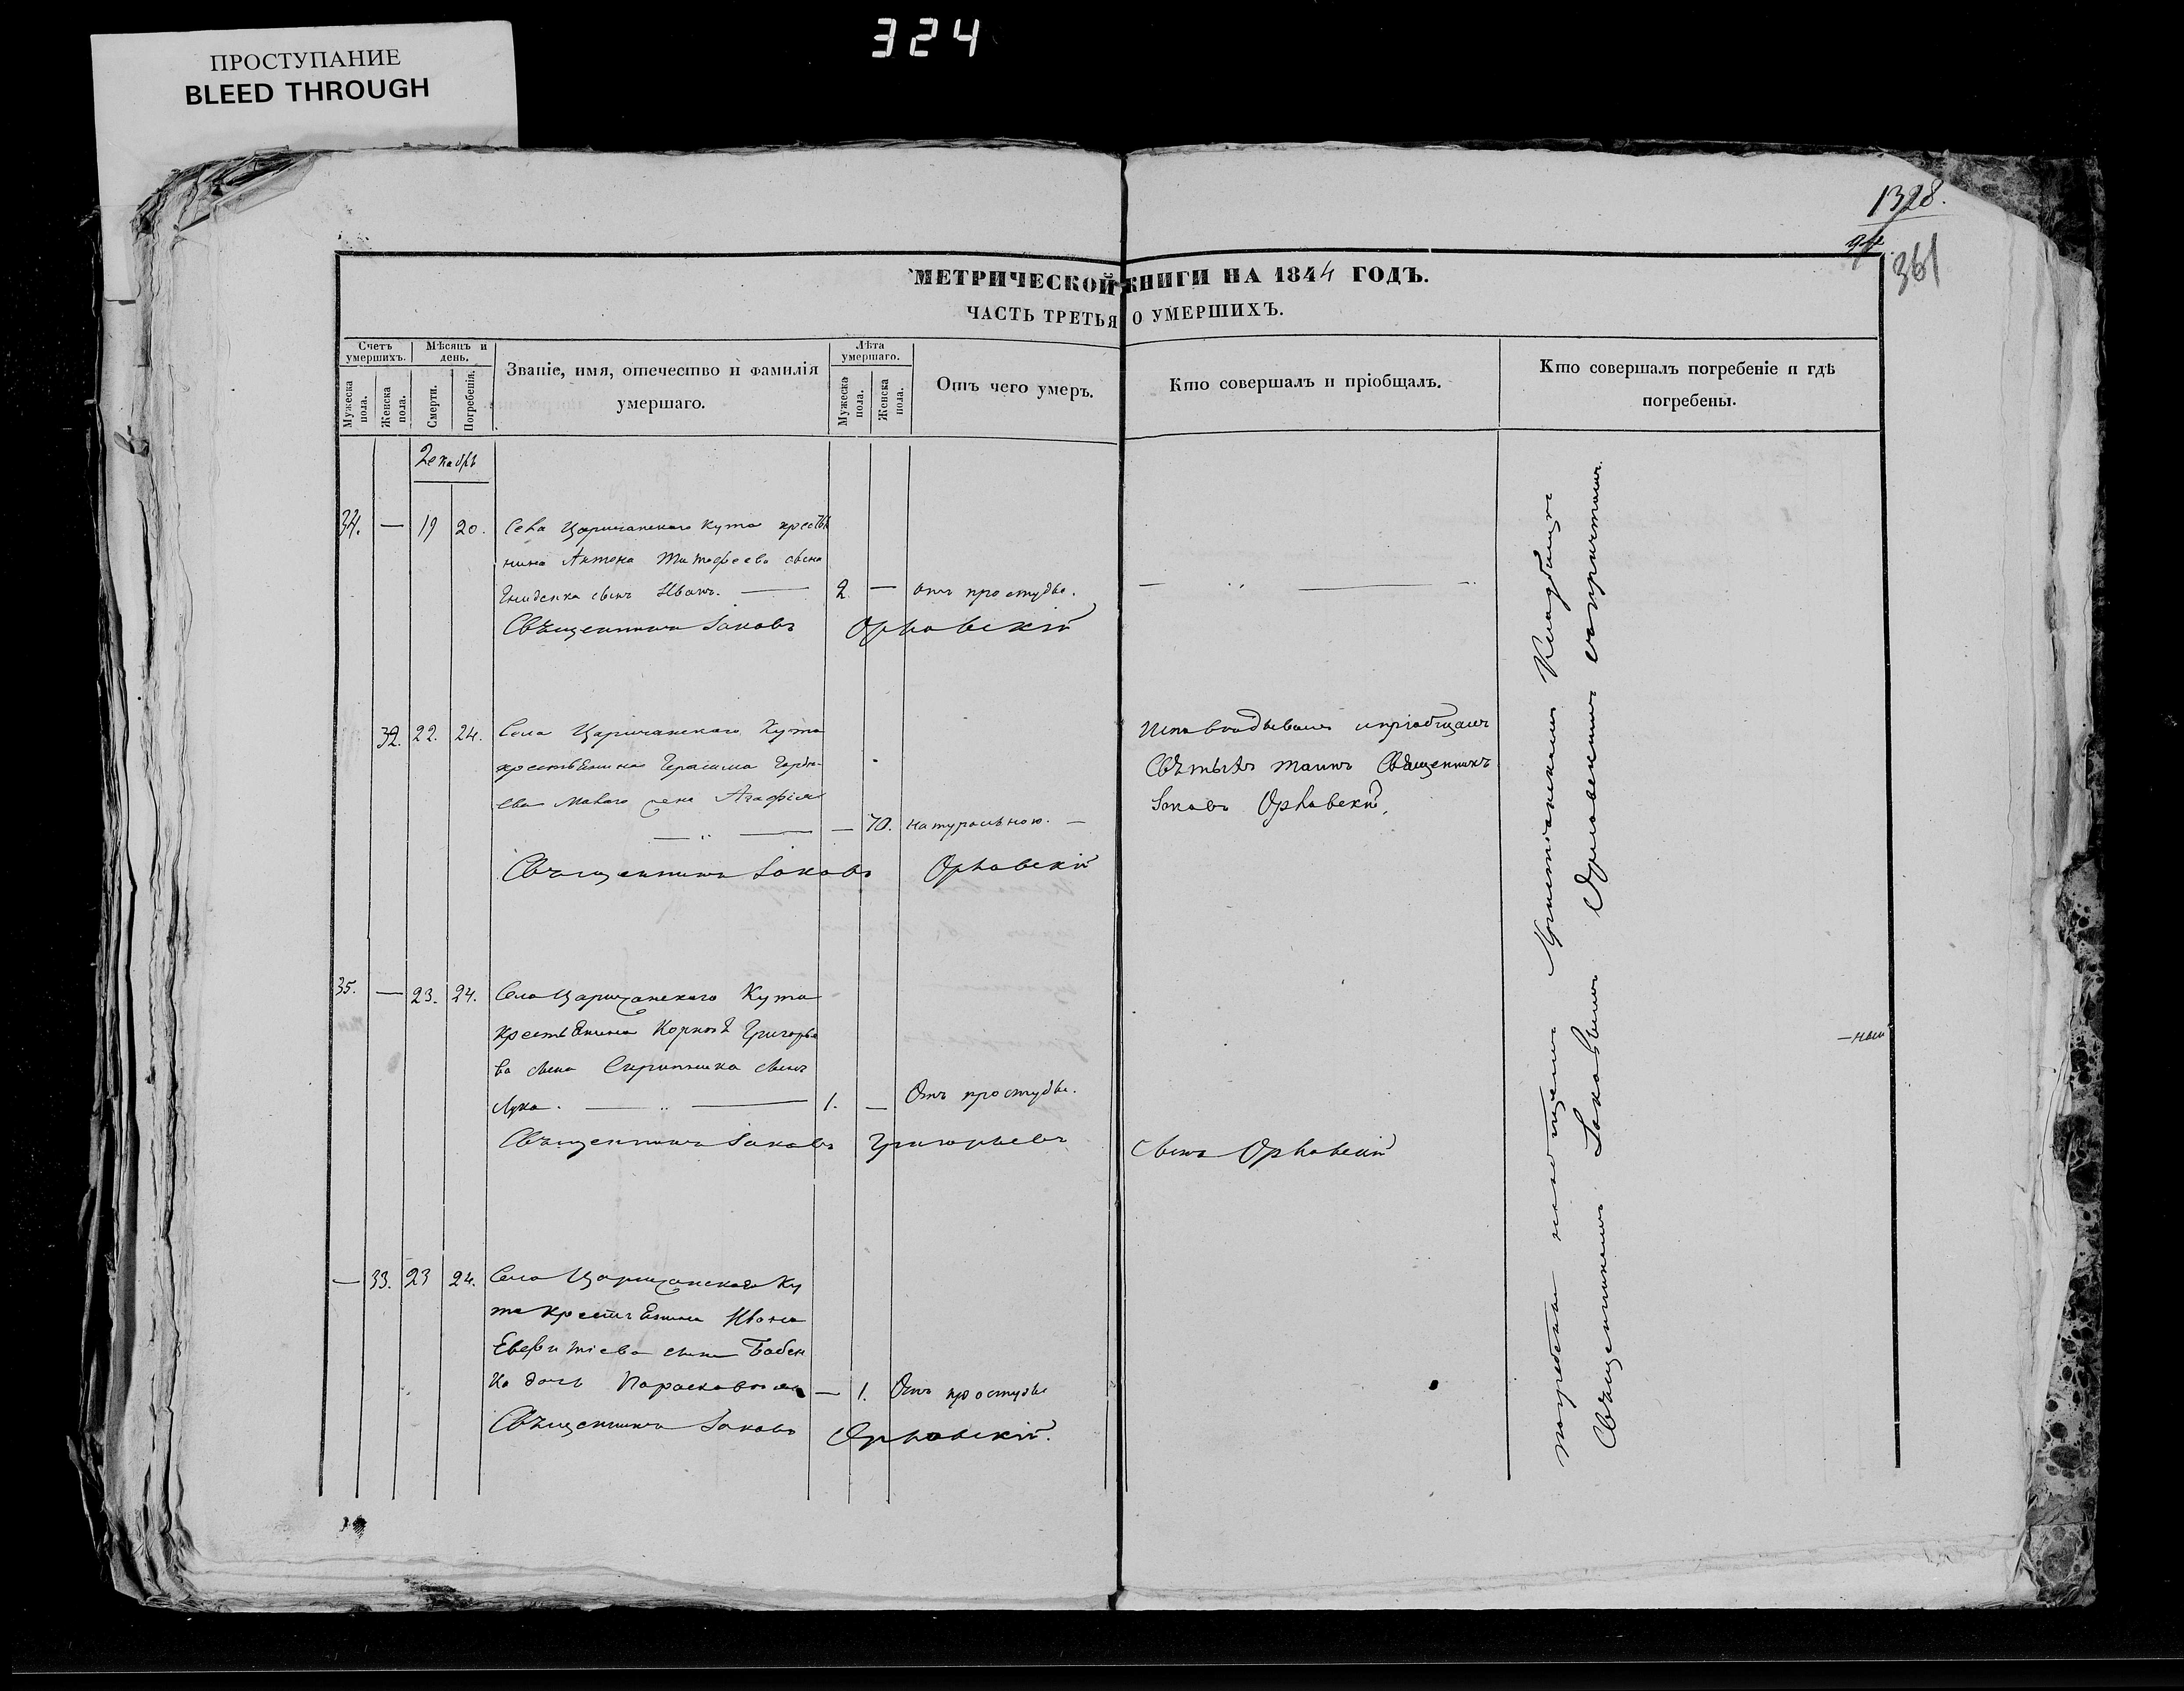 324
ПРОСТУПАНИЕ
BLEED THROUGH
1328.
361
МЕТРИЧЕСКОЙ КНИГИ НА 1844 ГОДЪ.
ЧАСТЬ ТРЕТЬЯ О УМЕРШИХЪ.
Счетъ умершихъ.
Мужеска пола.
Женска пола.
Мѣсяцъ и день.
Смерти.
Погребенія.
Званіе, имя, отечество и фамилія умершаго.
Лѣта умершаго.
Мужеска пола.
Женска пола.
Отъ чего умеръ.
Кто совершалъ и пріобщалъ.
Кто совершалъ погребеніе и гдѣ погребены.
Декабрь
34. — 19 20. Села Царичанскаго Кута крестья
нина Антона Тимофеева сына
сынъ Иванъ. — 2. — отъ простуды.
Священникъ Іаковъ Орловскій
32. 22. 24. Села Царичанскаго Кута
крестьянина Герасима
жена Агафія
— 70. натуральною. —
Исповѣдывалъ и пріобщалъ
Святыхъ таинъ Священникъ
Іаковъ Орловскій,
Священникъ Іаковъ Орловскій
35. — 23. 24. Села Царичанскаго Кута
крестьянина Корнея Григорье
ва сына Скрипника сынъ
Лука. — 1. — Отъ простуды.
Священникъ Іаковъ Григорьевъ сынъ Орловскій
— 33. 23 24. Села Царичанскаго Ку
та крестьянина Ивана
сына Бабен
ка дочь Параскавія — 1. Отъ простуды
Священникъ Іаковъ Орловскій.
погребены на общемъ Христіанскомъ Кладбищѣ
Священникомъ Іаковомъ Орловскимъ съ причтомъ.